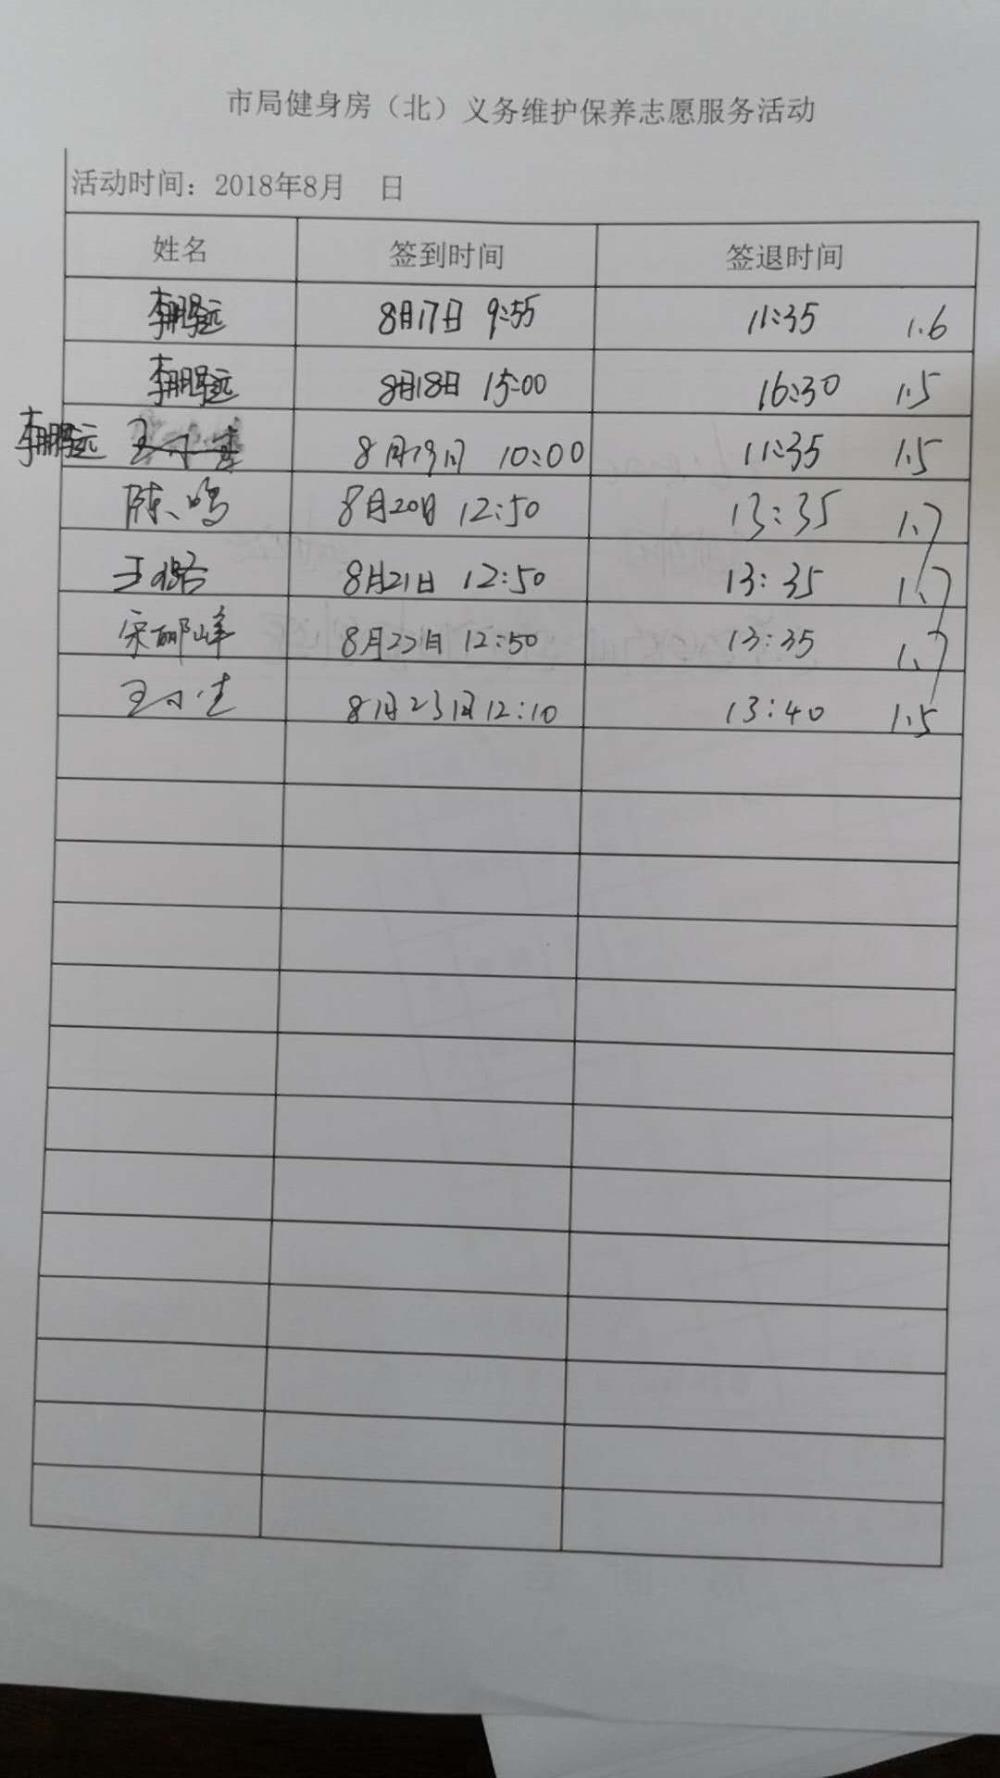 市局健身房（北）义务维护保养志愿服务活动
活动时间：2018年8月 日
姓名 签到时间 签退时间
李鹏远 8月17日 9:55 11:35 1.6
李鹏远 8月18日 15:00 16:30 1.5
李鹏远 8月19日 10:00 11:35 1.5
陈鸣 8月20日 12:50 13:35 1.7
王璐 8月21日 12:50 13:35 1.7
宋郦峰 8月22日 12:50 13:35 1.7
8月23日 12:10 13:40 1.5